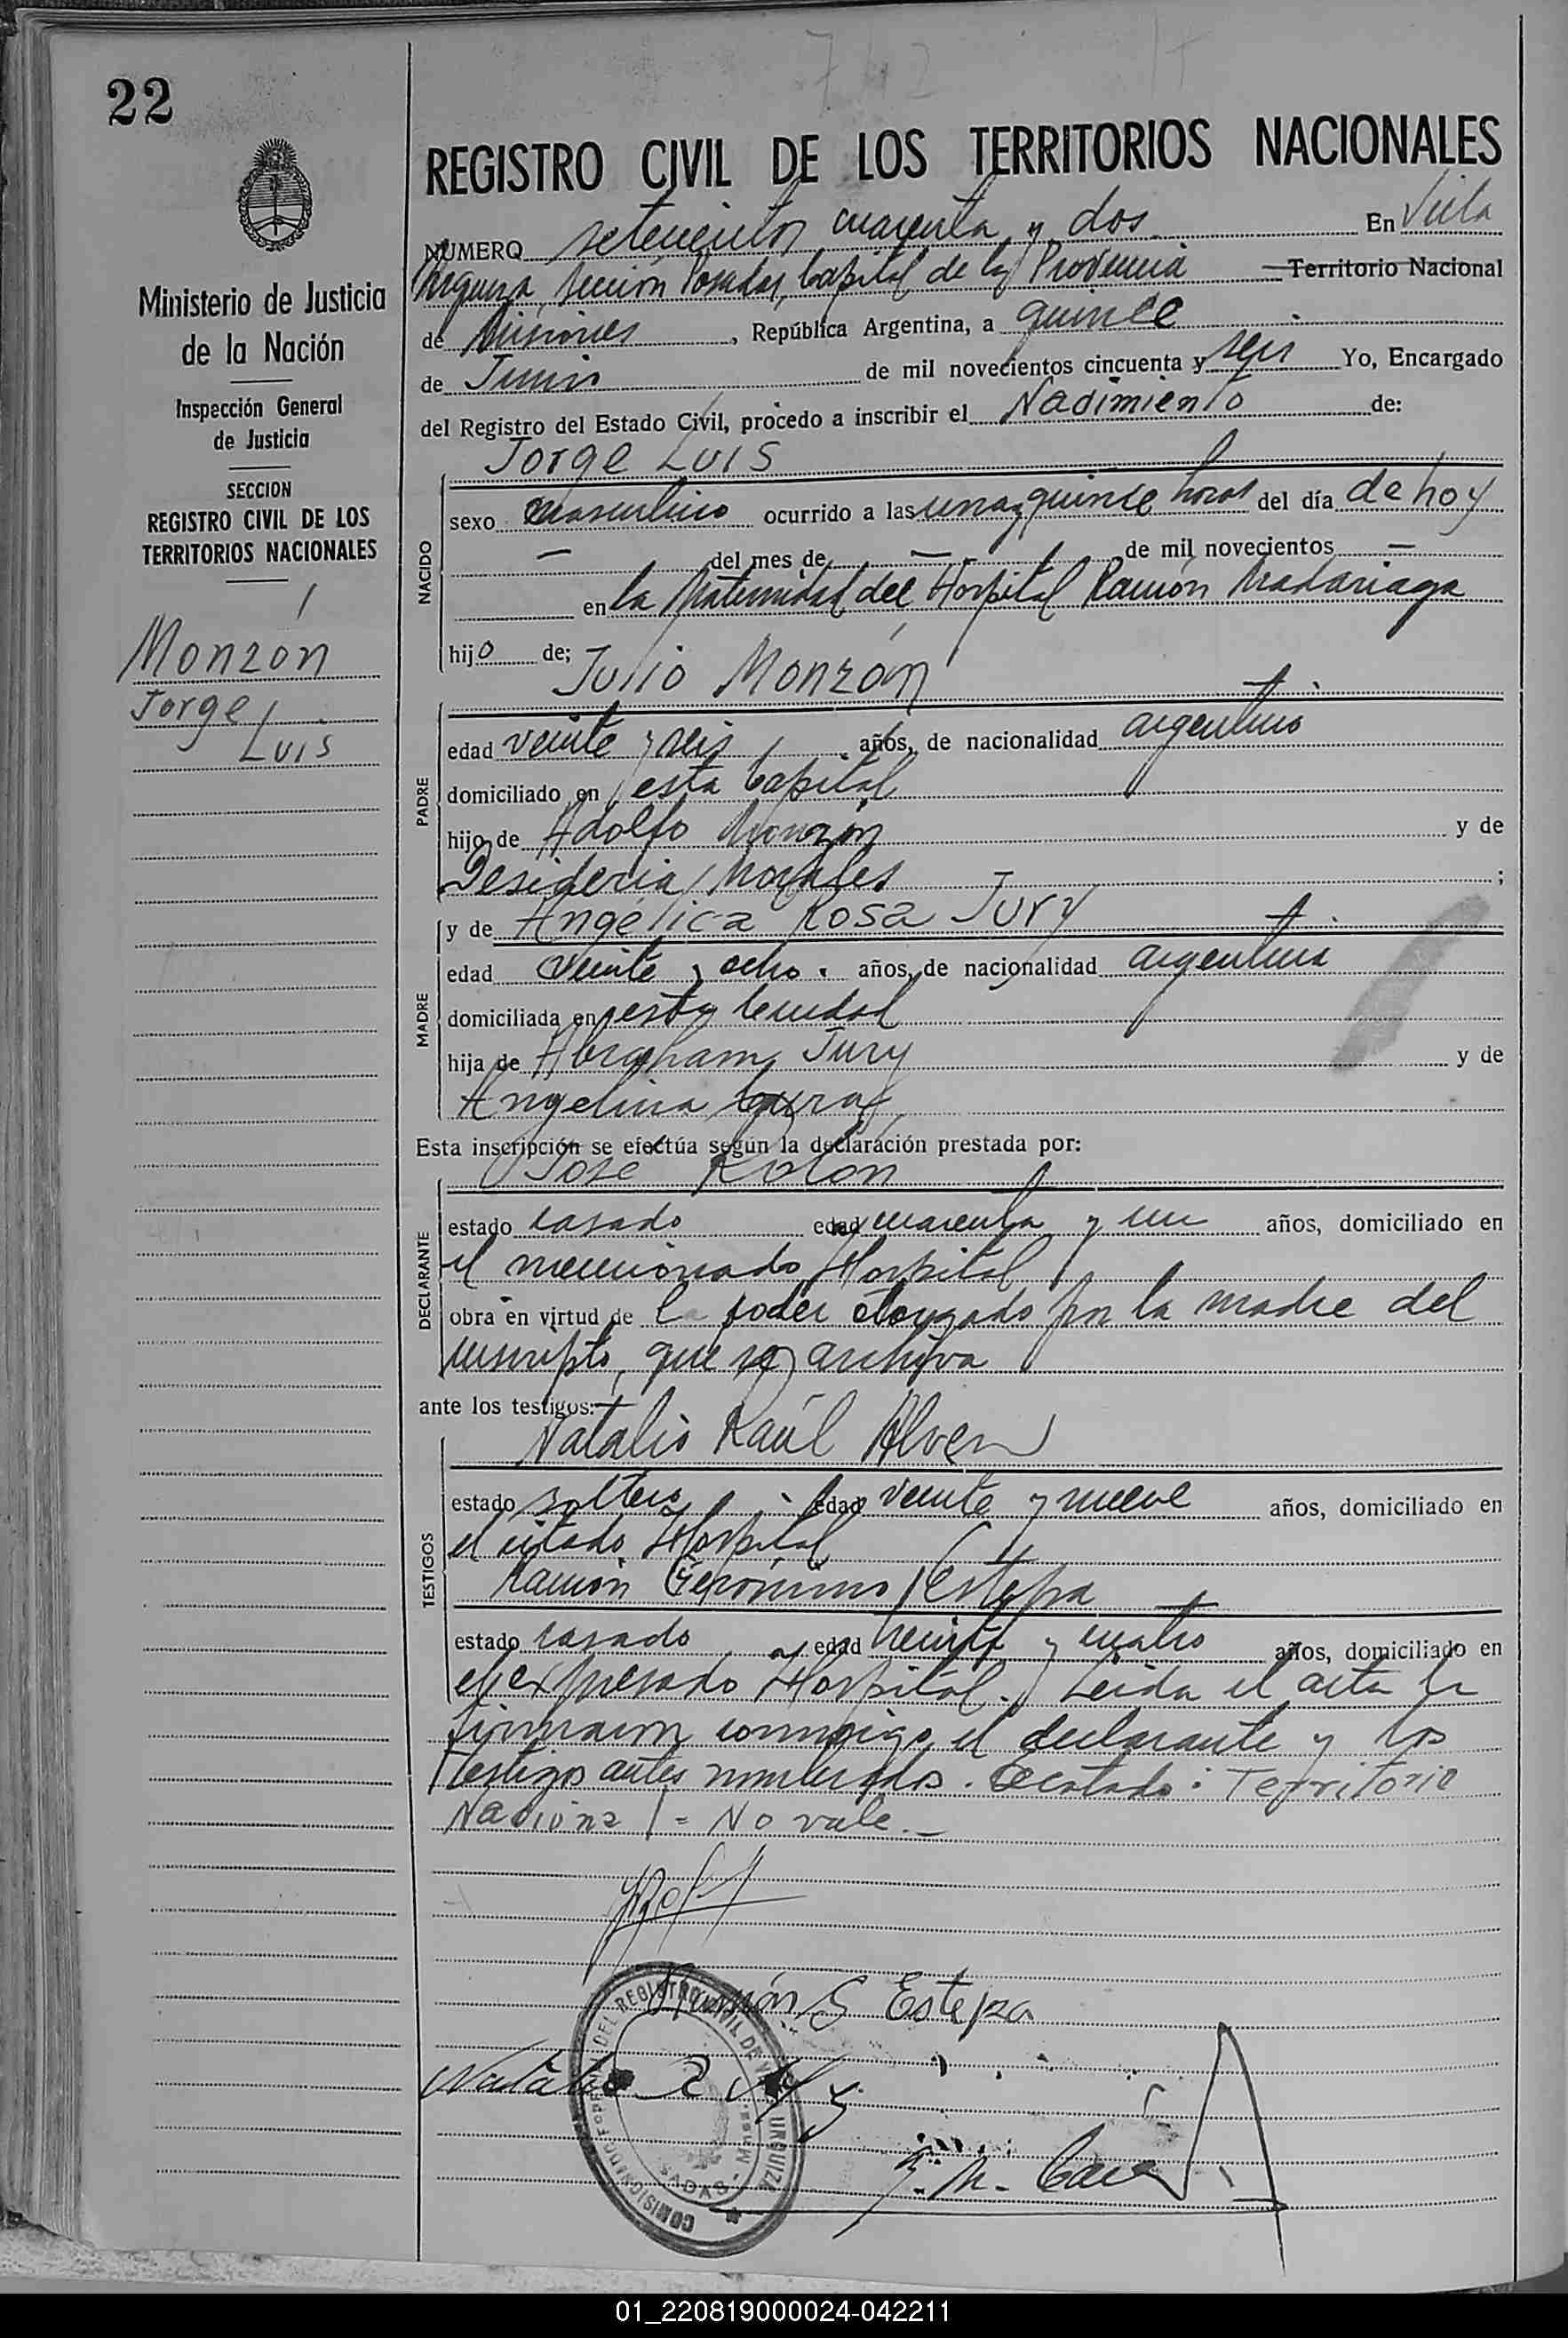 22
742
REGISTRO CIVIL DE LOS TERRITORIOS NACIONALES
Ministerio de Justicia
de la Nación
Inspección General
de Justicia
SECCION
REGISTRO CIVIL DE LOS
TERRITORIOS NACIONALES
Monzón
Jorge
Luis
NUMERO setecientos cuarenta y dos En Villa
Urquiza, Sección Posadas, Capital de la Provincia Territorio Nacional
de Misiones, República Argentina, a quince
de Junio de mil novecientos cincuenta y seis Yo, Encargado
del Registro del Estado Civil, procedo a inscribir el Nacimiento de:
Jorge Luis
NACIDO
sexo masculino ocurrido a las una y quince horas del día de hoy
— del mes de — de mil novecientos —
en la Maternidad del Hospital Ramón Madariaga
hijo de; Julio Monzón
PADRE
edad veinte y seis años, de nacionalidad argentino
domiciliado en esta Capital
hijo de Adolfo Monzón y de
Desideria Morales ;
y de Angélica Rosa Jury
MADRE
edad veinte y ocho años, de nacionalidad argentina
domiciliada en esta Ciudad
hija de Abraham Jury y de
Angelina
Esta inscripción se efectúa según la declaración prestada por:
José Rolón
DECLARANTE
estado casado edad cuarenta y un años, domiciliado en
el mencionado Hospital
obra en virtud de poder otorgado por la madre del
inscripto, que se archiva
ante los testigos:
Natalio Raúl
TESTIGOS
estado soltero edad veinte y nueve años, domiciliado en
el citado Hospital
Ramón Gerónimo Estepa
estado casado edad treinta y cuatro años, domiciliado en
el expresado Hospital. Leída el acta la
firmaron conmigo el declarante y los
testigos antes nombrados. Testado: Territorio
Nacional = No vale.—
Ramón G Estepa
01_220819000024-042211